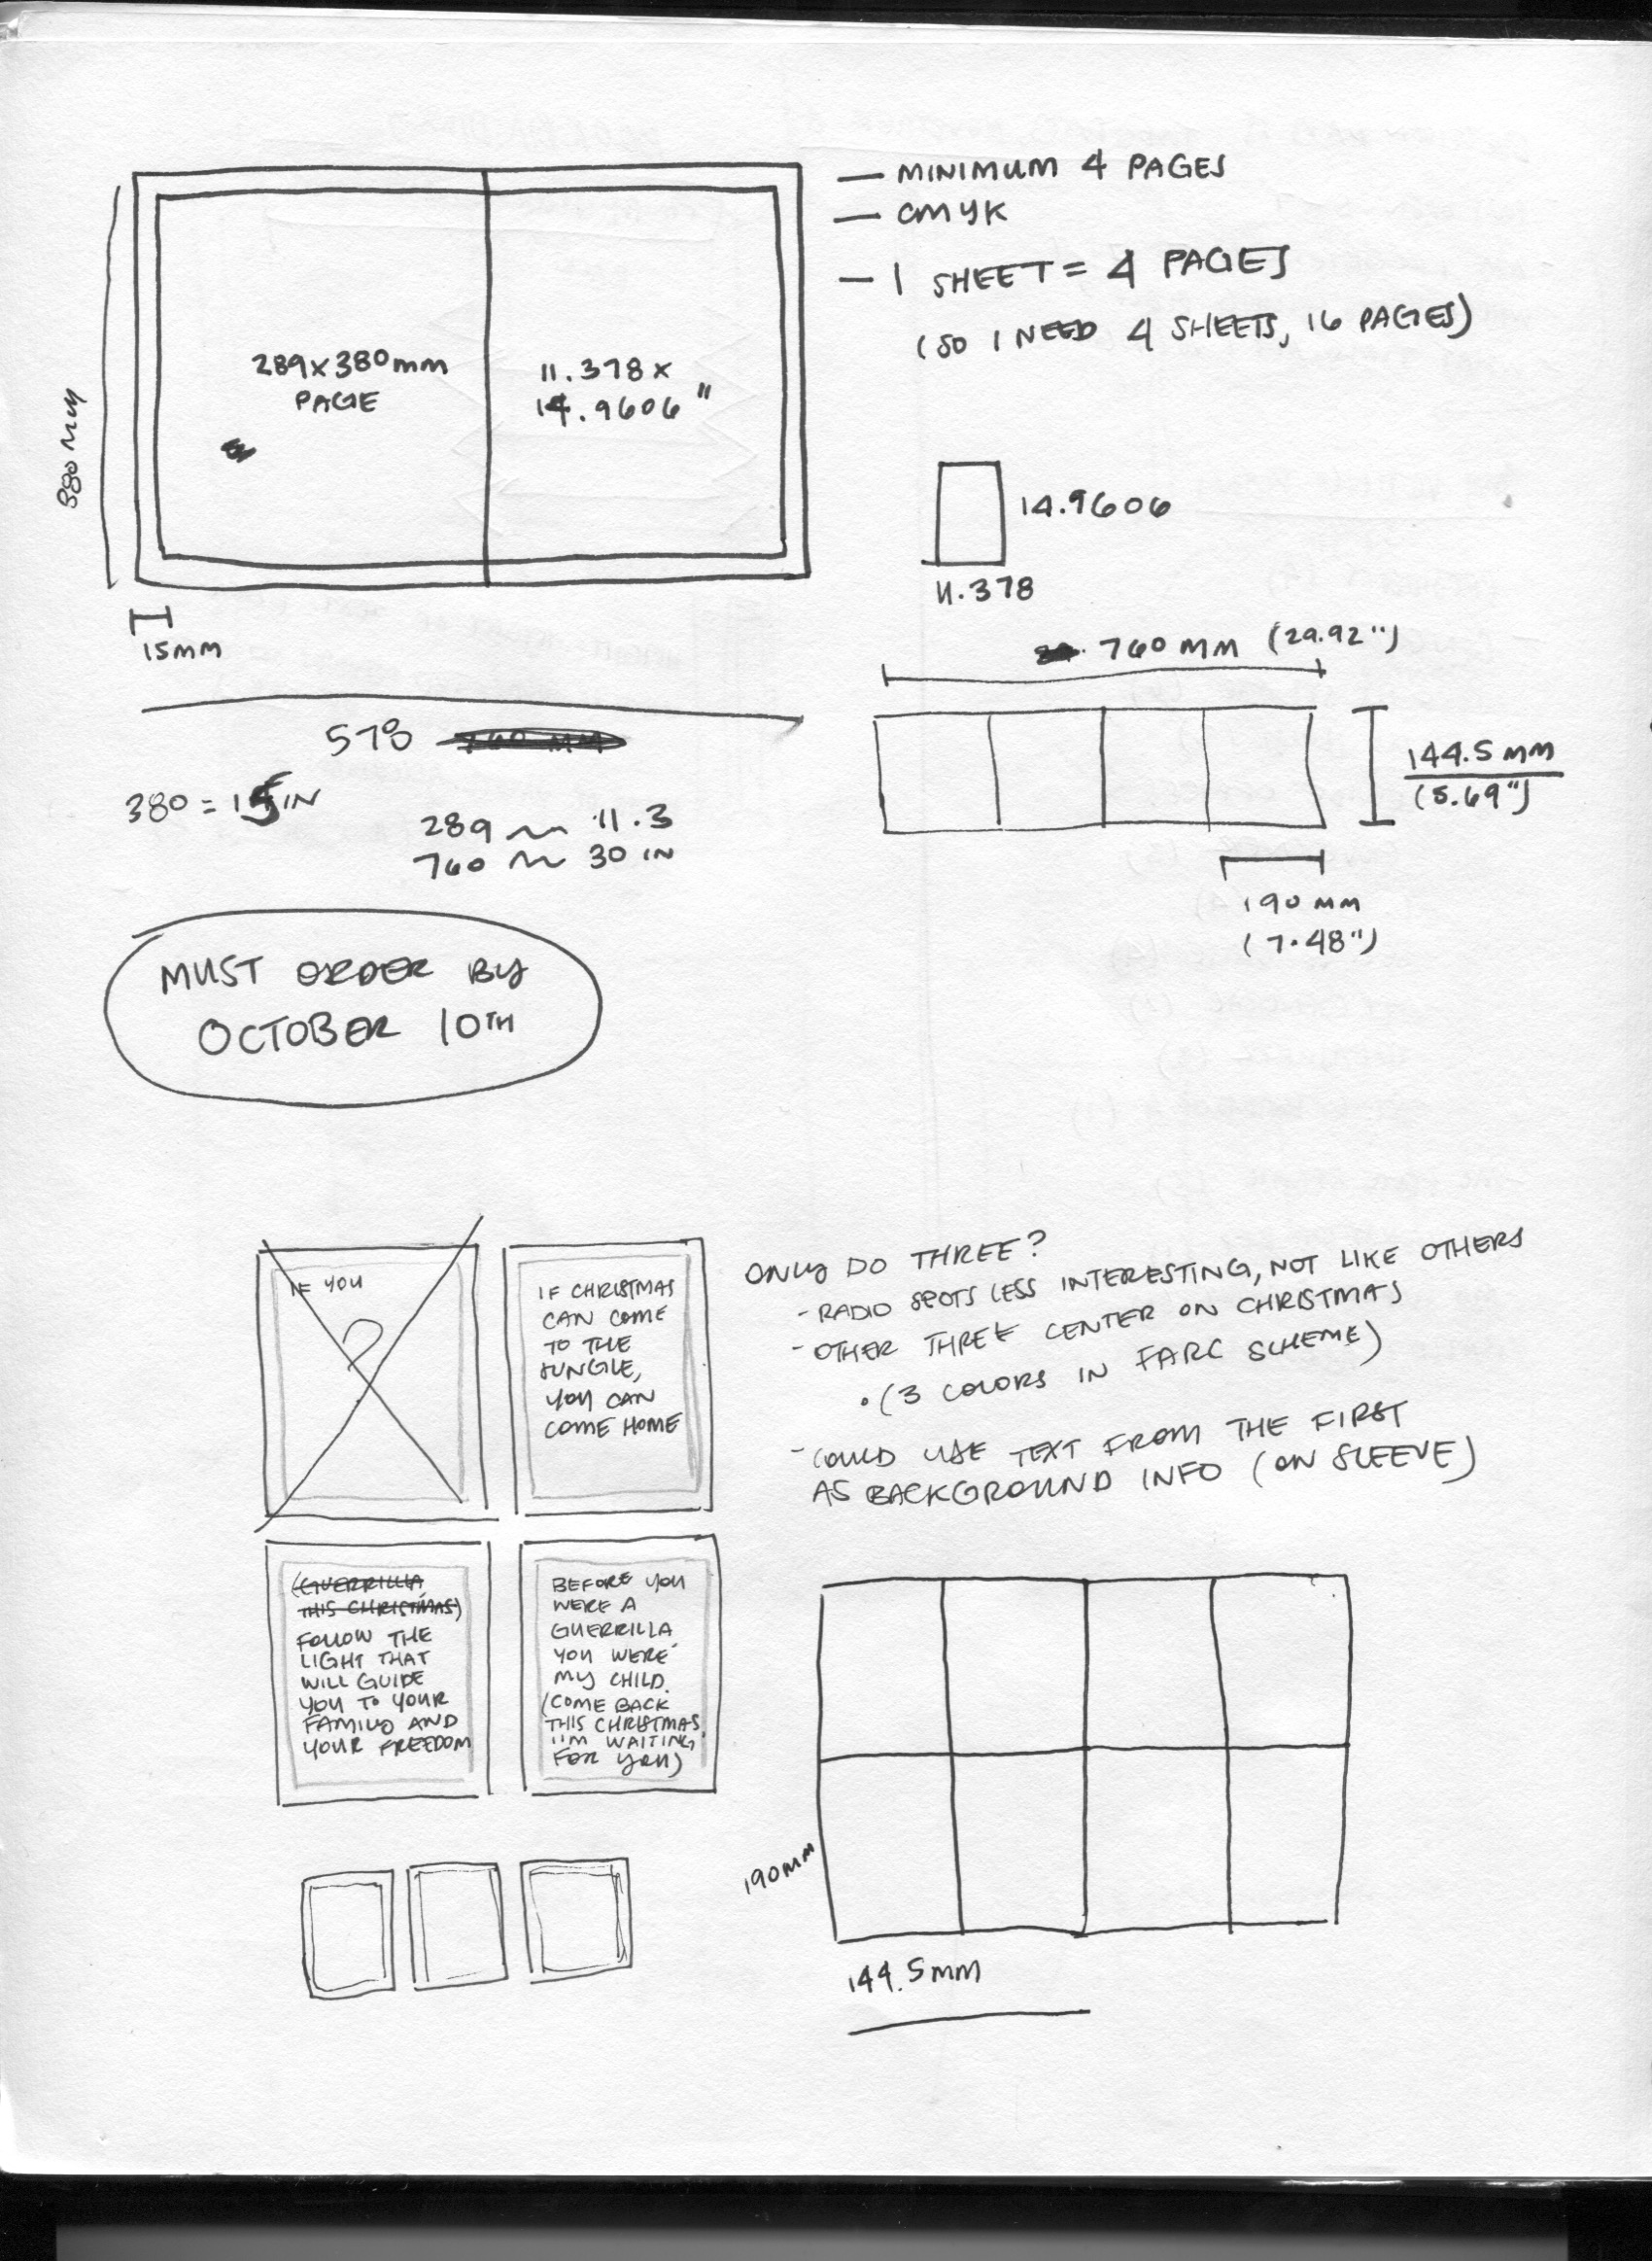 — MINIMUM 4 PAGES
— CMYK
— 1 SHEET = 4 PAGES
(SO I NEED 4 SHEETS, 16 PAGES)
289x380mm
PAGE
11.378x
14.9606"
380 MM
15MM
14.9606
11.378
760 MM (29.92")
144.5 MM
(5.69")
190 MM
(7.48")
578 760 MM
380 = 15 IN
289 ~ 11.3
760 ~ 30 IN
MUST ORDER BY
OCTOBER 10TH
IF YOU
?
IF CHRISTMAS
CAN COME
TO THE
JUNGLE,
YOU CAN
COME HOME
ONLY DO THREE?
- RADIO SPOTS LESS INTERESTING, NOT LIKE OTHERS
- OTHER THREE CENTER ON CHRISTMAS
• (3 COLORS IN FARC SCHEME)
- COULD USE TEXT FROM THE FIRST
AS BACKGROUND INFO (ON SLEEVE)
(GUERRILLA
THIS CHRISTMAS)
FOLLOW THE
LIGHT THAT
WILL GUIDE
YOU TO YOUR
FAMILY AND
YOUR FREEDOM
BEFORE YOU
WERE A
GUERRILLA
YOU WERE
MY CHILD.
(COME BACK
THIS CHRISTMAS,
I'M WAITING
FOR YOU)
190MM
144.5MM